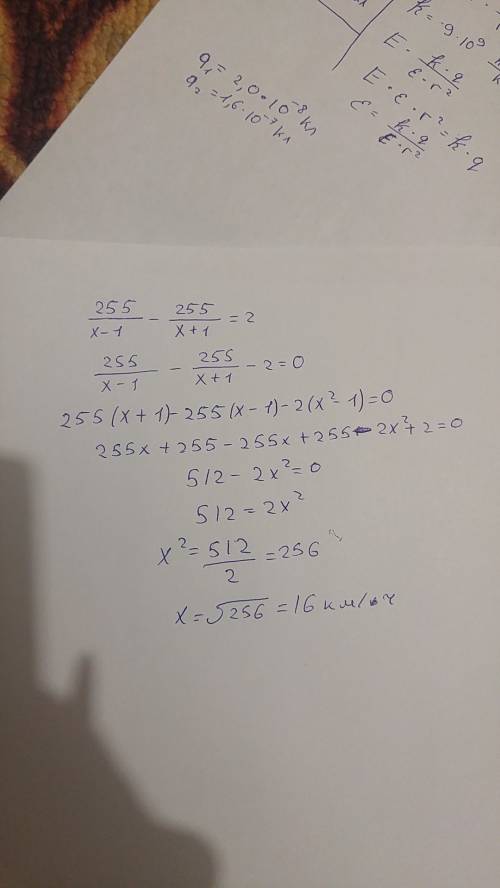 k = 9·10⁹
E = k·q / ε·r²
E·ε·r² = k·q
ε = k·q / E·r²
q₁ = 2,0·10⁻⁸ Кл
q₂ = 1,6·10⁻⁷ Кл
255/(x-1) - 255/(x+1) = 2
255/(x-1) - 255/(x+1) - 2 = 0
255(x+1)-255(x-1)-2(x²-1)=0
255x+255-255x+255-2x²+2=0
512-2x²=0
512=2x²
x²=512/2=256
x=√256=16 км/ч